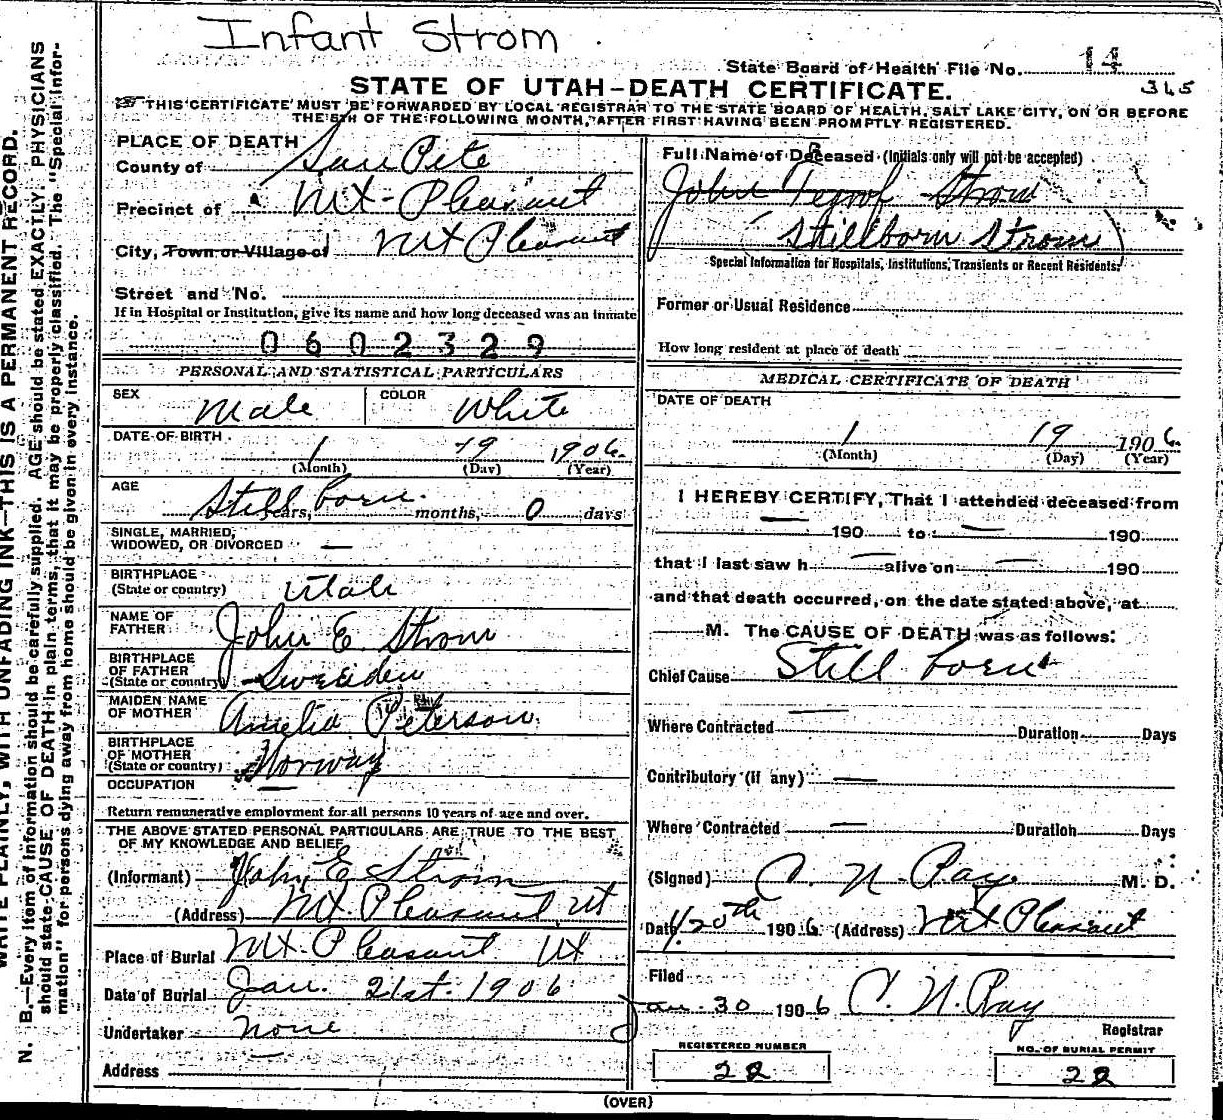 Infant Strom
State Board of Health File No. 14
STATE OF UTAH-DEATH CERTIFICATE.
345
THIS CERTIFICATE MUST BE FORWARDED BY LOCAL REGISTRAR TO THE STATE BOARD OF HEALTH, SALT LAKE CITY, ON OR BEFORE
THE 5TH OF THE FOLLOWING MONTH, AFTER FIRST HAVING BEEN PROMPTLY REGISTERED.
PLACE OF DEATH
County of San Pete
Precinct of Mt-Pleasant
City, Town or Village of Mt Pleasant
Street and No.
If in Hospital or Institution, give its name and how long deceased was an inmate
0602329
PERSONAL AND STATISTICAL PARTICULARS
SEX Male COLOR White
DATE OF BIRTH
1 19 1906
(Month) (Day) (Year)
AGE
Still born years, months, 0 days
SINGLE, MARRIED,
WIDOWED, OR DIVORCED —
BIRTHPLACE
(State or country) Utah
NAME OF
FATHER John E Strom
BIRTHPLACE
OF FATHER
(State or country) Sweeden
MAIDEN NAME
OF MOTHER Amelia Peterson
BIRTHPLACE
OF MOTHER
(State or country) Norway
OCCUPATION —
Return remunerative employment for all persons 10 years of age and over.
THE ABOVE STATED PERSONAL PARTICULARS ARE TRUE TO THE BEST
OF MY KNOWLEDGE AND BELIEF
(Informant) John E Strom
(Address) Mt Pleasant Ut
Place of Burial Mt. Pleasant Ut
Date of Burial Jan. 21st. 1906
Undertaker none
Address —
Full Name of Deceased (Initials only will not be accepted)
John Strom
Stillborn Strom)
Special Information for Hospitals, Institutions, Transients or Recent Residents.
Former or Usual Residence
How long resident at place of death
MEDICAL CERTIFICATE OF DEATH
DATE OF DEATH
1 19 1906.
(Month) (Day) (Year)
I HEREBY CERTIFY, That I attended deceased from
— 190 to — 190
that I last saw h — alive on — 190
and that death occurred, on the date stated above, at
M. The CAUSE OF DEATH was as follows:
Chief Cause Still born
Where Contracted — Duration Days
Contributory (if any) —
Where Contracted — Duration Days
(Signed) C. N. Ray M. D.
Date 1/20th 1906 (Address) Mt Pleasant
Filed
Jan. 30 1906 C. N. Ray
Registrar
REGISTERED NUMBER
22
NO. OF BURIAL PERMIT
22
(OVER)
WRITE PLAINLY, WITH UNFADING INK—THIS IS A PERMANENT RECORD.
N. B.—Every item of information should be carefully supplied. AGE should be stated EXACTLY. PHYSICIANS
should state CAUSE OF DEATH in plain terms, that it may be properly classified. The "Special Infor-
mation" for persons dying away from home should be given in every instance.